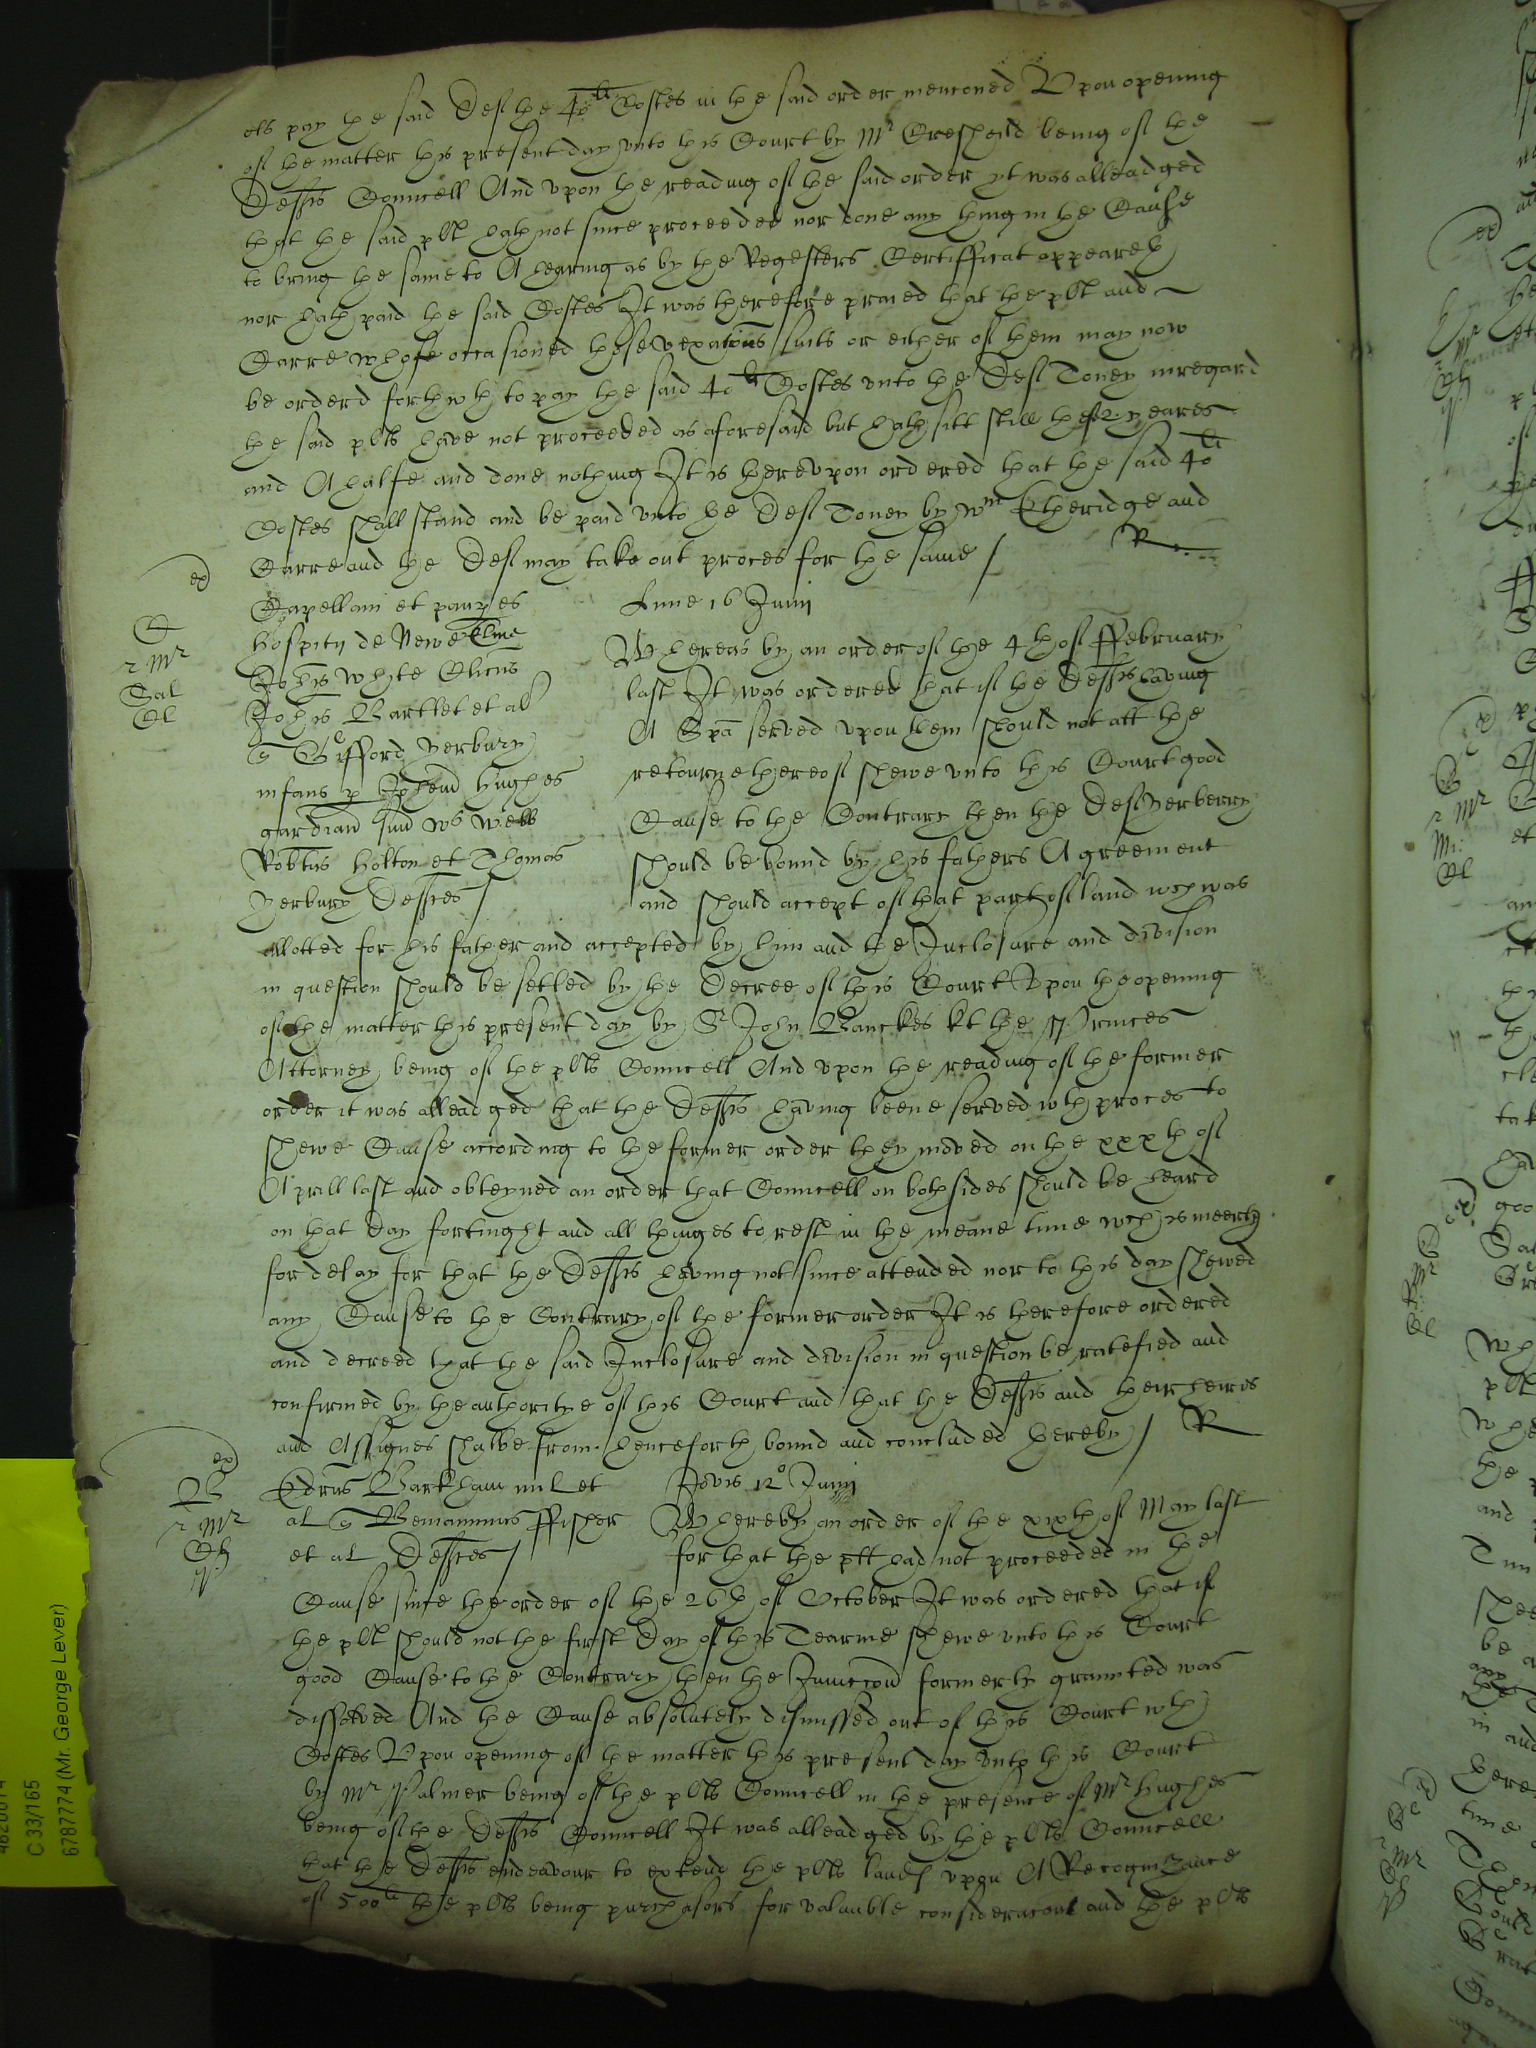 els pay the said Deft the 40li Costes in the said order menconed Upon opening
of the matter this present day unto this Court by Mr Cresheild being of the
Defts Councell And upon the reading of the said order yt was alleadged
that the said plt hath not since proceeded nor done any thing in the Cause
to bring the same to A hearing as by the Regesters Certifficat appeareth
nor hath paid the said Costes It was therefore praied that the plt and
Carre whose occasioned these vexatious suits or either of them may now
be orderd forthwth to pay the said 40li Costes unto the Deft Toney in regard
the said plts have not proceeded as aforesaid but hath sitt still these 2 yeares
and A halfe and done nothing It is thereupon ordered that the said 40li
Costes shall stand and be paid unto the Deft Toney by Wm Etheridge and
Carre and the Deft may take out proces for the same / R
Capellani et paupes Lune 16 Junij
hospitij de Newe Elme
Johis Whyte Clicus Whereas by an order of the 4th of ffebruary
Johis Bartlet et al last It was ordered that if the Defts having
Gifford Yerbury A Spa served upon them should not att the
infans p Ipheud Hughes retourne thereof shewe unto this Court good
gardian Cause to the Contrary then the Deft Yerberry
Robtus Holton et Thomas should be bound by his fathers Agreement
Yerbury Deftes / and should accept of that part of land wch was
allotted for his father and accepted by him and the Inclosure and division
in question should be setled by the Decree of this Court Upon the opening
of the matter this present day by Sr John Banckes kt the Princes
Attorney being of the plts Councell And upon the reading of the former
order it was alleadged that the Defts having beene served wth proces to
shewe Cause according to the former order they moved on the xxxth of
Aprill last and obteyned an order that Councell on both sides should be heard
on that day fortinght and all thinges to rest in the meane time wch is meerly
for delay for that the Defts having not since attended nor to this day shewed
any Cause to the Contrary of the former order It is therefore ordered
and decreed that the said Inclosure and division in question be ratefied and
confirmed by the authoritye of this Court and that the Defts and their heires
and Assignes shalbe from henceforth bound and concluded thereby / R
Edrus Barkham mil et Jovis 12o Junij
al Beniaminus ffisher Whereby an order of the xixth of May last
et al Deftes / for that the plt had not proceeded in the
Cause since the order of the 26th of October It was ordered that if
the plt should not the first day of this Tearme shewe unto this Court
good Cause to the Contrary then the Iniuccon formerly graunted was
dissolved And the Cause absolutely dismissed out of this Court wth
Costes Upon opening of the matter this present day unto this Court
by Mr Palmer being of the plts Councell in the presence of Mr Hughes
being of the Defts Councell It was alleadged by the plts Councell
that the Defts endeavour to extend the plts land upon A Recognizance
of 500li the plts being purchasors for valuable consideracon and the plts
C 33/165
6787774 (Mr. George Lever)